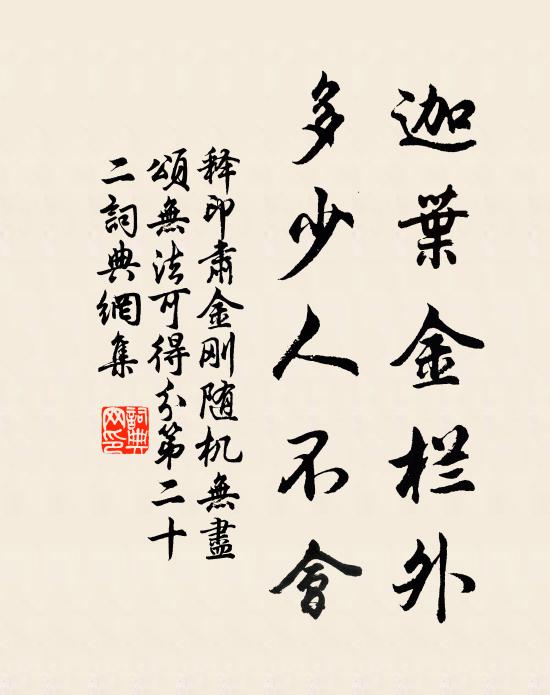 迦葉金栏外
多少人不會
释印肃金刚随机無盡
頌無法可得分第二十
二詞典網集
詞典网印